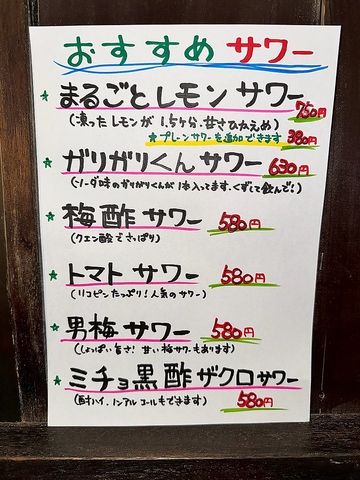 おすすめ サワー
★ まるごとレモン サワー 750円
(凍ったレモンが 1.5ケ分、甘さひかえめ)
★プレーンサワーを追加できます 380円
★ ガリガリくん サワー 630円
(ソーダ味のガリガリくんが 1本入ってます。くずして飲んで!)
★ 梅酢 サワー 580円
(クエン酸でさっぱり)
★ トマト サワー 580円
(リコピンたっぷり!人気のサワー)
★ 男梅 サワー 580円
(しょっぱい旨さ! 甘い梅サワーもあります)
★ ミチョ黒酢 ザクロ サワー
(酎ハイ、ノンアルコールもできます) 580円